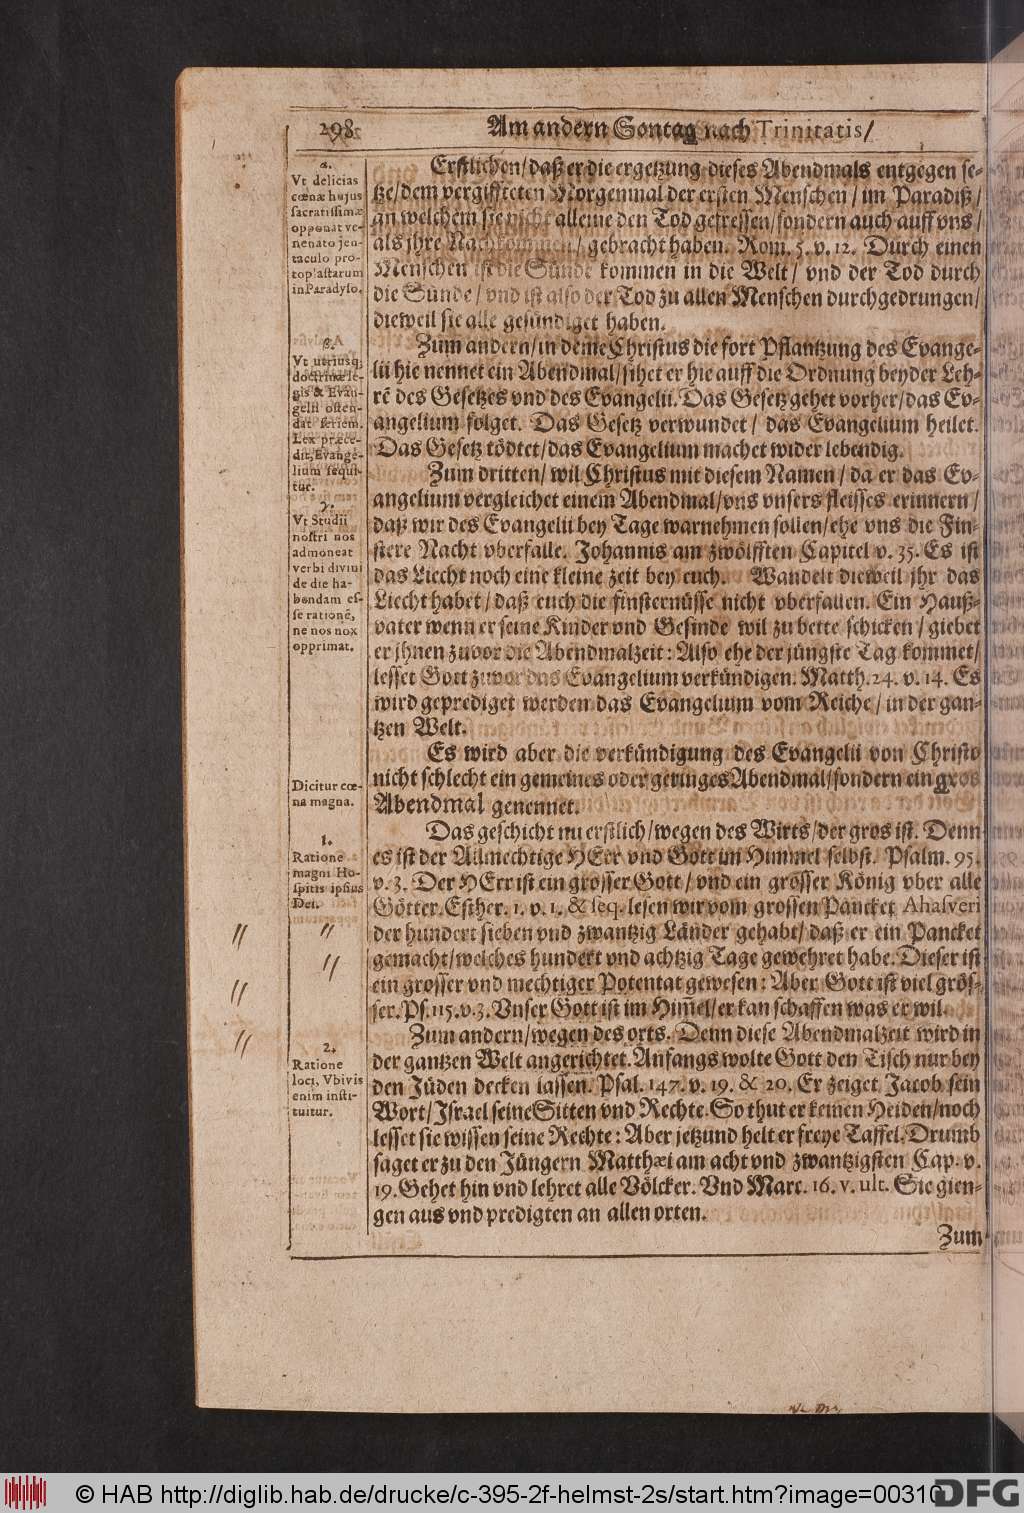 298
Am andern Sontag nach Trinitatis/
Erstlichen/daß er die ergetzung dieses Abendmals entgegen se-
tze/dem vergiffteten Morgenmal der ersten Menschen/im Paradiß/
an welchem sie nicht alleine den Tod gefressen/sondern auch auff vns/
als jhre Nachkommen/gebracht haben. Rom. 5. v. 12. Durch einen
Menschen ist die Sünde kommen in die Welt/ vnd der Tod durch
die Sünde/vnd ist also der Tod zu allen Menschen durchgedrungen/
dieweil sie alle gesündiget haben.
Zum andern/in deme Christus die fort Pflantzung des Evange-
lii hie nennet ein Abendmal/sihet er hie auff die Ordnung beyder Leh-
rē des Gesetzes vnd des Evangelii. Das Gesetz gehet vorher/das Ev-
angelium folget. Das Gesetz verwundet/ das Evangelium heilet.
Das Gesetz tödtet/das Evangelium machet wider lebendig.
Zum dritten/ wil Christus mit diesem Namen/ da er das Ev-
angelium vergleichet einem Abendmal/vns vnsers fleisses erinnern/
daß wir des Evangelii bey Tage warnehmen sollen/ehe vns die Fin-
stere Nacht vberfalle. Johannis am zwölfften Capitel v. 35. Es ist
das Liecht noch eine kleine zeit bey euch. Wandelt dieweil jhr das
Liecht habet/ daß euch die finsternüsse nicht vberfallen. Ein Hauß-
vater wenn er seine Kinder vnd Gesinde wil zu bette schicken/ giebet
er jhnen zuvor die Abendmalzeit: Also ehe der jüngste Tag kommet/
lesset Gott zuvor das Evangelium verkündigen. Matth. 24. v. 14. Es
wird geprediget werden das Evangelium vom Reiche/ in der gan-
tzen Welt.
Es wird aber die verkündigung des Evangelii von Christo
nicht schlecht ein gemeines oder geringes Abendmal/sondern ein gros
Abendmal genennet.
Das geschicht nu erstlich/wegen des Wirts/der gros ist. Denn
es ist der Allmechtige HErr vnd Gott im Himmel selbst. Psalm. 95.
v. 3. Der HErr ist ein grosser Gott/ vnd ein grosser König vber alle
Götter. Esther. 1. v. 1. & seq. lesen wir vom grossen Pancket Ahasveri
der hundert sieben vnd zwantzig Länder gehabt/ daß er ein Pancket
gemacht/welches hundert vnd achtzig Tage gewehret habe. Dieser ist
ein grosser vnd mechtiger Potentat gewesen: Aber Gott ist viel grös-
ser. Ps. 115. v. 3. Vnser Gott ist im Him̄el/er kan schaffen was er wil.
Zum andern/wegen des orts. Denn diese Abendmalzeit wird in
der gantzen Welt angerichtet. Anfangs wolte Gott den Tisch nur bey
den Jüden decken lassen. Psal. 147. v. 19. & 20. Er zeiget Jacob sein
Wort/Israel seine Sitten vnd Rechte. So thut er keinen Heiden/noch
lesset sie wissen seine Rechte: Aber jetzund helt er freye Taffel. Drumb
saget er zu den Jüngern Matthæi am acht vnd zwantzigsten Cap. v.
19. Gehet hin vnd lehret alle Völcker. Vnd Marc. 16. v. ult. Sie gien-
gen aus vnd predigten an allen orten.
Zum
Vt delicias
cœnæ hujus
sacratissimæ
opponat ve-
nenato jen-
taculo pro-
toplastarum
in Paradyso.
Vt utriusq;
doctrinæ le-
gis & Evan-
gelii osten-
dat seriem.
Lex præce-
dit, Evange-
lium sequi-
tur.
Vt Studii
nostri nos
admoneat
verbi divini
de die ha-
bendam es-
se rationē,
ne nos nox
opprimat.
Dicitur cœ-
na magna.
1.
Ratione
magni Ho-
spitis ipsius
Dei.
2.
Ratione
loci, Vbivis
enim insti-
tuitur.
© HAB http://diglib.hab.de/drucke/c-395-2f-helmst-2s/start.htm?image=00310
DFG